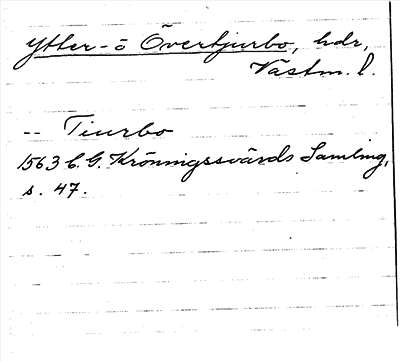 Ytter- o Övertjurbo, hdr,
Västm. l.
-- Tiurbo
1563 C. G. Kröningssvärds Samling,
s. 47.